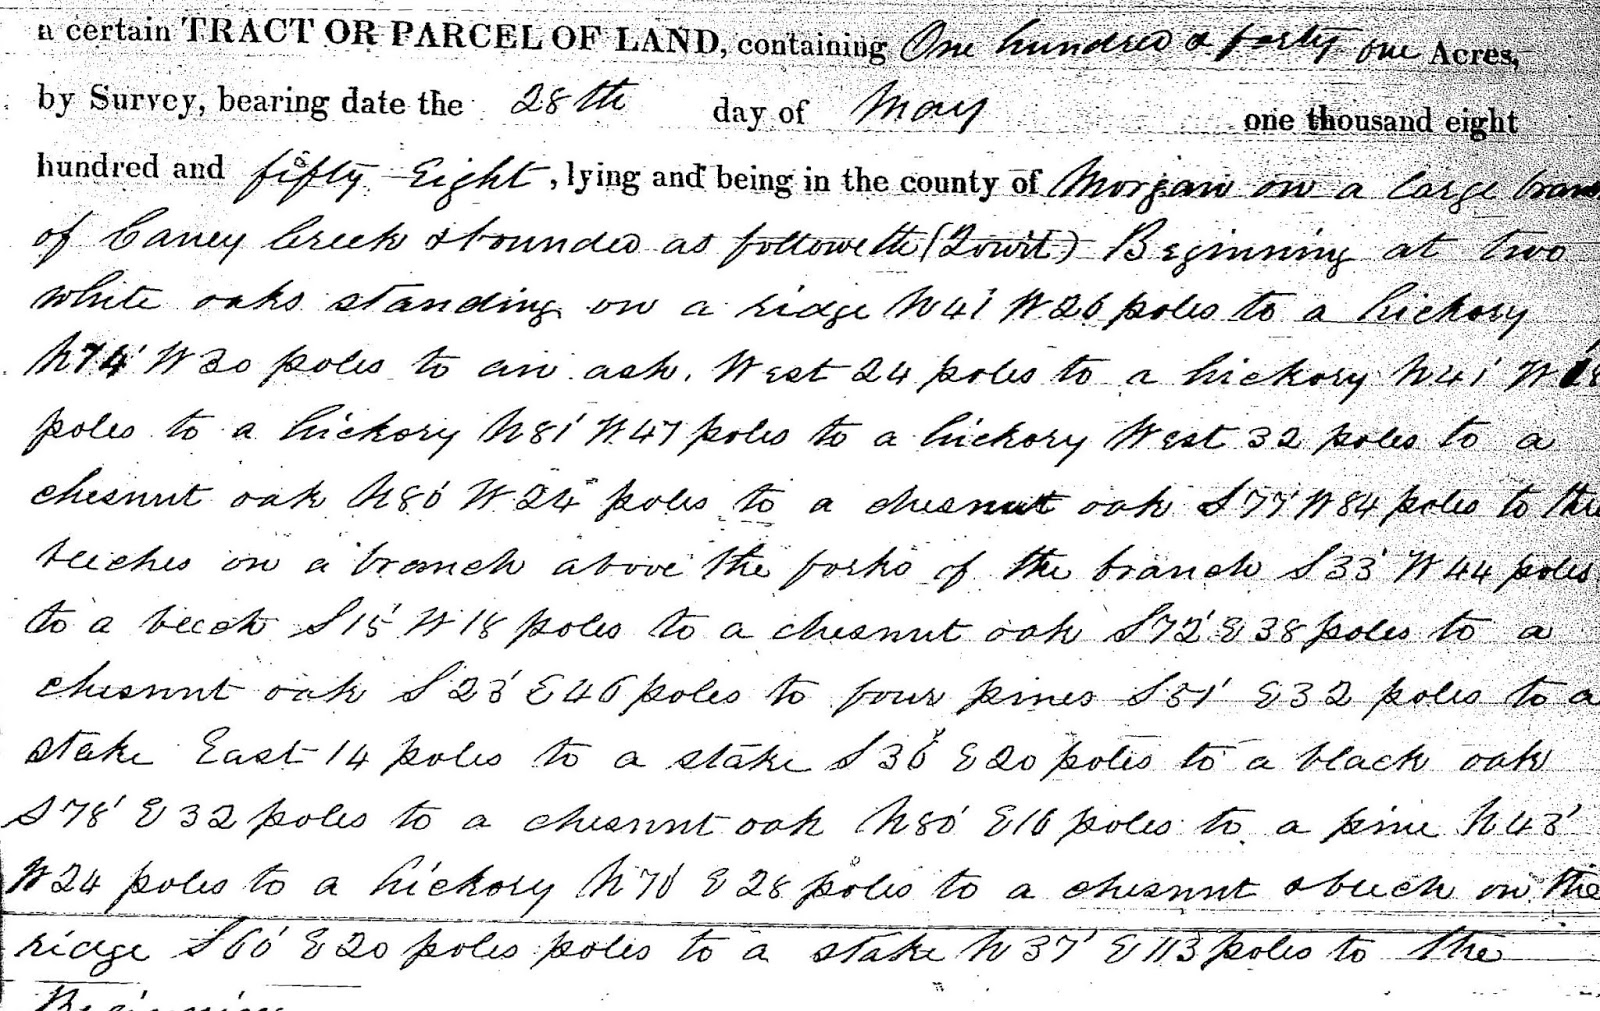 a certain TRACT OR PARCEL OF LAND, containing One hundred & forty one Acres,
by Survey, bearing date the 28th day of May one thousand eight
hundred and fifty Eight, lying and being in the county of Morgan on a large
of Caney Creek & bounded as followeth (Towit) Beginning at two
white oaks standing on a ridge N41' W26 poles to a hickory
N74' W30 poles to an ash. West 24 poles to a hickory N41' W
poles to a hickory N81' W47 poles to a hickory West 32 poles to a
chesnut oak N80' W24 poles to a chesnut oak S77' W84 poles to
beeches on a branch above the forks of the branch S33' W44 poles
to a beech S15' W18 poles to a chesnut oak S72' E38 poles to a
chesnut oak S23' E46 poles to four pines S51' E32 poles to a
stake East 14 poles to a stake S36' E20 poles to a black oak
S78' E32 poles to a chesnut oak N80' E16 poles to a pine N43'
W24 poles to a hickory N70' E28 poles to a chesnut & beech on the
ridge S60' E20 poles poles to a stake N37' E113 poles to the
Beginning